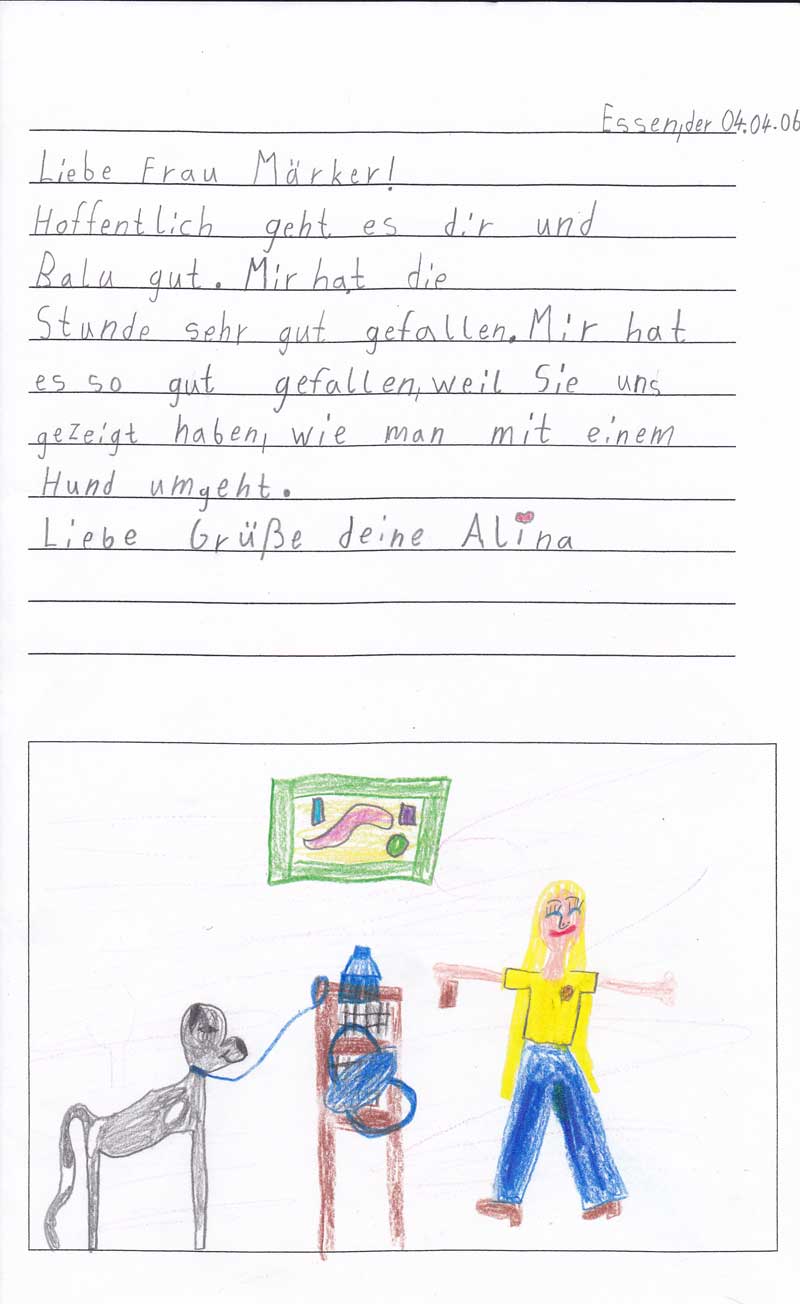 Essen, der 04.04.06
Liebe Frau Märker!
Hoffentlich geht es dir und
Balu gut. Mir hat die
Stunde sehr gut gefallen. Mir hat
es so gut gefallen, weil Sie uns
gezeigt haben, wie man mit einem
Hund umgeht.
Liebe Grüße deine Alina